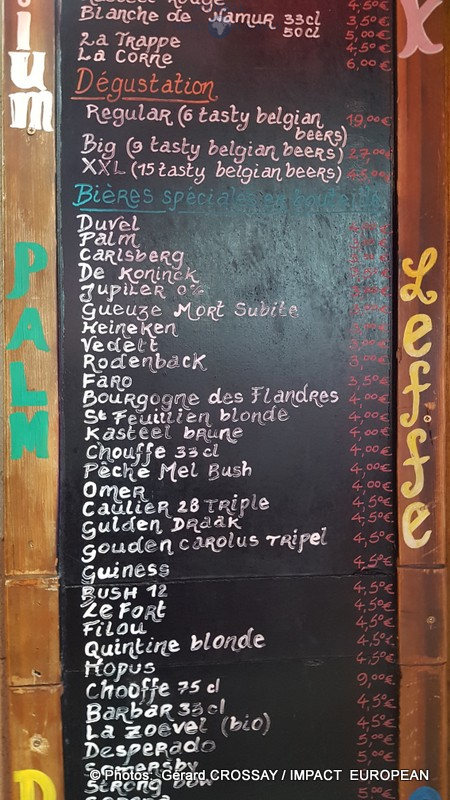 Blanche de Namur 33cl 3,50€
50cl 5,00€
La Trappe 4,50€
La Corne 6,00€
Dégustation
Regular (6 tasty belgian beers) 19,00€
Big (9 tasty belgian beers) 27,00€
XXL (15 tasty belgian beers)
Bières spéciales en bouteille
Duvel
Palm
Carlsberg
De Koninck
Jupiler 0%
Gueuze Mort Subite
Heineken
Vedett
Rodenback 3,00€
Faro 3,50€
Bourgogne des Flandres 4,00€
St Feuillien blonde 4,00€
Kasteel brune 4,00€
Chouffe 33 cl 4,00€
Pêche Mel Bush 4,00€
Omer 4,00€
Caulier 28 Triple 4,50€
Gulden Draak 4,50€
Gouden Carolus Tripel 4,50€
Guiness 4,50€
Bush 12 4,50€
Le Fort 4,50€
Filou 4,50€
Quintine blonde 4,50€
Hopus 4,50€
Chouffe 75 cl 9,00€
Barbar 33 cl 4,50€
La Zoevel (bio) 4,50€
Desperado 5,00€
Somersby 5,00€
Strong Bow 5,00€
ium
PALM
X
Leffe
D
© Photos: Gerard CROSSAY / IMPACT EUROPEAN